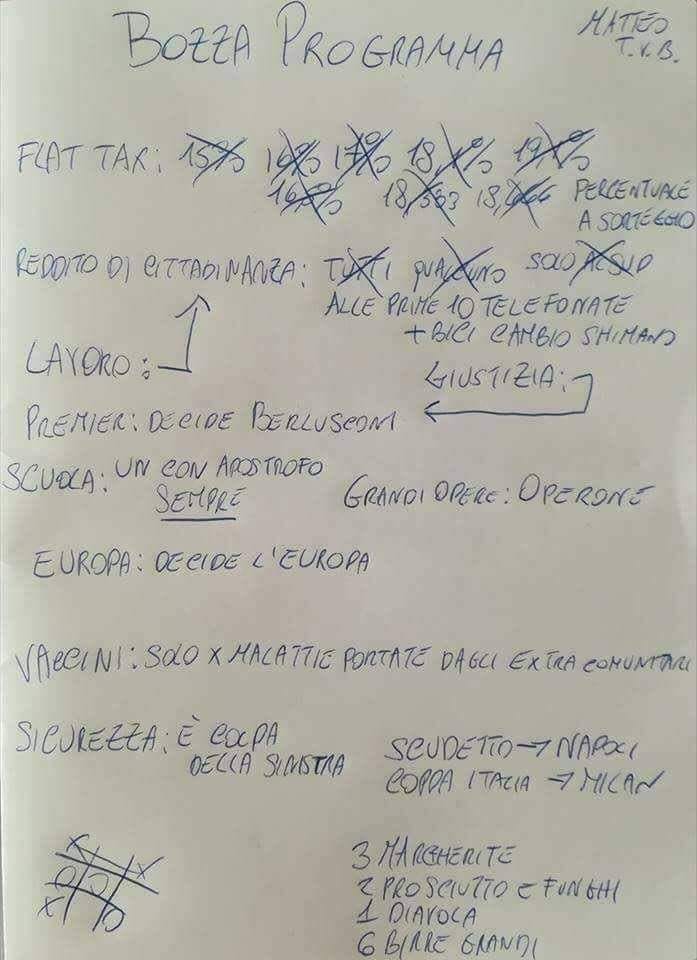 BOZZA PROGRAMMA
MATTEO
T.V.B.
FLAT TAX: 15% 16% 17% 18,1% 19,1%
16,5% 18,333 18,666 PERCENTUALE
A SORTEGGIO
REDDITO DI CITTADINANZA: TUTTI QUALCUNO SOLO AL SUD
ALLE PRIME 10 TELEFONATE
+ BICI CAMBIO SHIMANO
LAVORO:
GIUSTIZIA:
PREMIER: DECIDE BERLUSCONI
SCUOLA: UN CON APOSTROFO
SEMPRE
GRANDI OPERE: OPERONE
EUROPA: DECIDE L'EUROPA
VACCINI: SOLO X MALATTIE PORTATE DAGLI EXTRA COMUNITARI
SICUREZZA: È COLPA
DELLA SINISTRA
SCUDETTO → NAPOLI
COPPA ITALIA → MILAN
X X
O O
X O
3 MARGHERITE
2 PROSCIUTTO E FUNGHI
1 DIAVOLA
6 BIRRE GRANDI